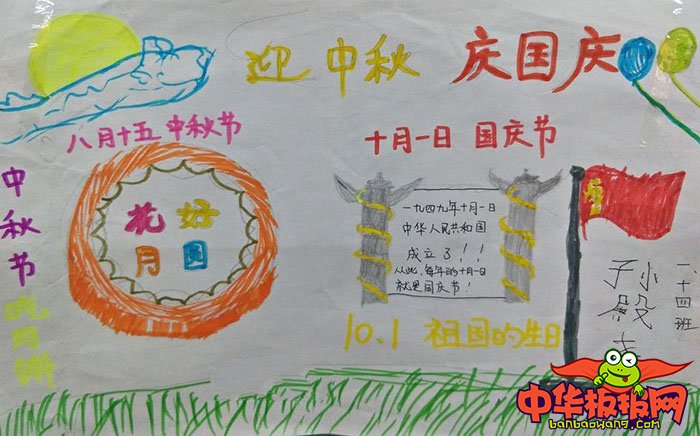 迎中秋 庆国庆
八月十五 中秋节
十月一日 国庆节
中秋节
吃月饼
花好
月圆
一九四九年十月一日
中华人民共和国
成立了!!
从此,每年的十月一日
就是国庆节!
10.1 祖国的生日
一十四班
孙
中华板报网
banbaowang.com